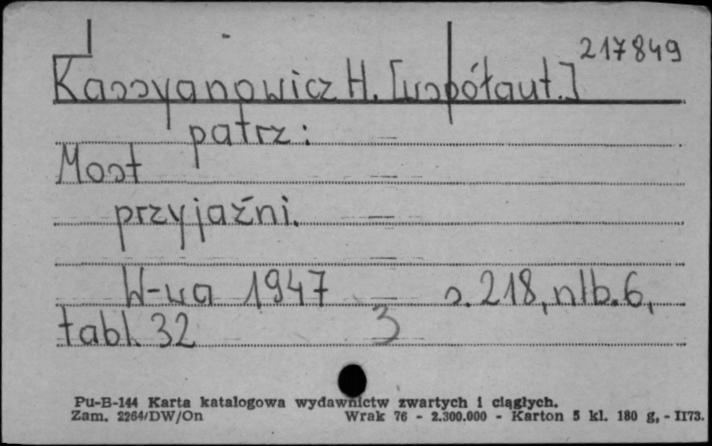 217849
Kassyanowicz H. [współaut.]
patrz:
Most
przyjaźni.
W-wa 1947 s. 218, nlb. 6,
tabl. 32 3
Pu-B-144 Karta katalogowa wydawnictw zwartych i ciągłych.
Zam. 2264/DW/On Wrak 76 - 2.300.000 - Karton 5 kl. 180 g, - II73.